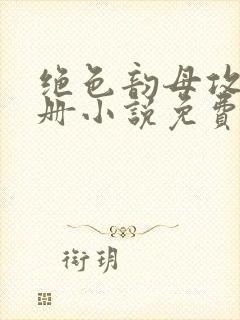 绝色韵母攻
册小説免費
衔玥